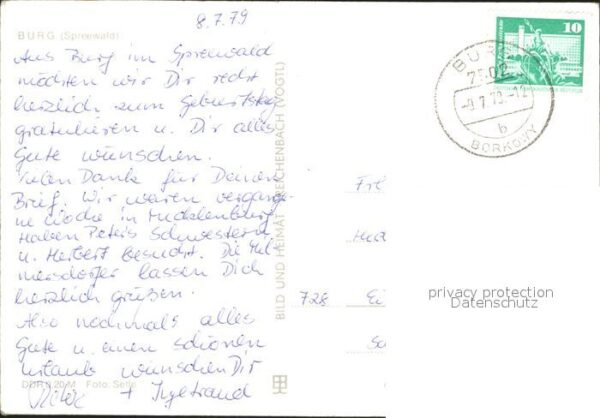 8.7.79
BURG (Spreewald)
Aus Burg im Spreewald
möchten wir Dir recht
herzlich zum Geburtstag
gratulieren u. Dir alles
Gute wünschen.
Vielen Dank für Deinen
Brief. Wir waren vergange-
ne Woche in Mecklenburg
haben Peters Schwestern
u. Herbert besucht. Die
mersdorfer lassen Dich
herzlich grüßen.
Also nochmals alles
Gute u. einen schönen
Urlaub wünschen Dir
+ Ingetraud
DDR 0,20 M Foto:
BILD UND HEIMAT REICHENBACH (VOGTL)
10
BURG
7502
-9.7.79-12
b
BORKOWY
728
privacy protection
Datenschutz